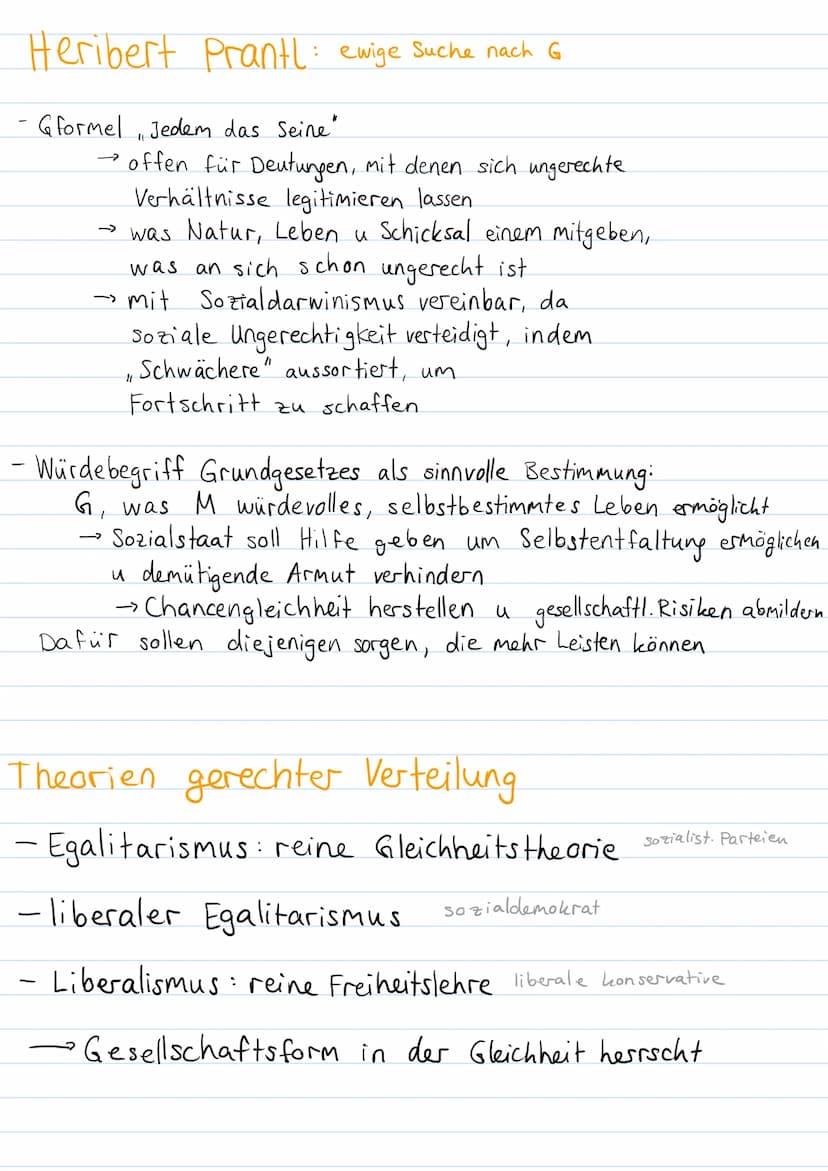 Heribert Prantl: ewige Suche nach G
- Gformel „Jedem das Seine"
→ offen für Deutungen, mit denen sich ungerechte
Verhältnisse legitimieren lassen
→ was Natur, Leben u Schicksal einem mitgeben,
was an sich schon ungerecht ist
→ mit Sozialdarwinismus vereinbar, da
soziale Ungerechtigkeit verteidigt, indem
„Schwächere" aussortiert, um
Fortschritt zu schaffen
- Würdebegriff Grundgesetzes als sinnvolle Bestimmung:
G, was M würdevolles, selbstbestimmtes Leben ermöglicht
→ Sozialstaat soll Hilfe geben um Selbstentfaltung ermöglichen
u demütigende Armut verhindern
→ Chancengleichheit herstellen u gesellschaftl. Risiken abmildern
Dafür sollen diejenigen sorgen, die mehr Leisten können
Theorien gerechter Verteilung
- Egalitarismus: reine Gleichheitstheorie sozialist. Parteien
- liberaler Egalitarismus sozialdemokrat
- Liberalismus: reine Freiheitslehre liberale konservative
→ Gesellschaftsform in der Gleichheit herrscht